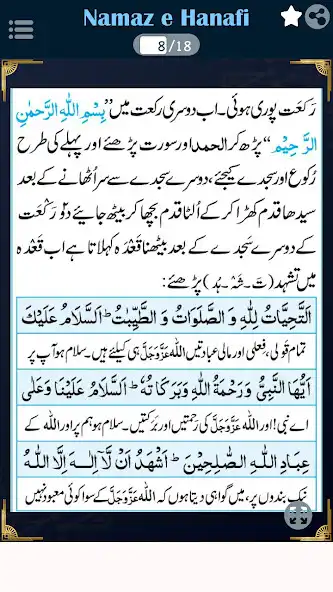 Namaz e Hanafi
8/18
رَکعَت پوری ہوئی۔ اب دوسری رکعت میں ’’بِسْمِ اللّٰہِ الرَّحْمٰنِ
الرَّحِیْمِ‘‘ پڑھ کر الحمد اور سورت پڑھئے اور پہلے کی طرح
رُکوع اور سجدے کیجئے، دوسرے سجدے سے سر اُٹھانے کے بعد
سیدھا قدم کھڑا کر کے اُلٹا قدم بچھا کر بیٹھ جائیے دو رَکْعَت
کے دوسرے سجدے کے بعد بیٹھنا قعْدَہ کہلاتا ہے اب قعْدَہ
میں تشہد (تَ۔شَہْ۔ہُد) پڑھئے:
اَلتَّحِیَّاتُ لِلّٰهِ وَ الصَّلَوَاتُ وَ الطَّیِّبٰتُ ؕ اَلسَّلَامُ عَلَیْكَ
تمام قولی، فعلی اور مالی عبادتیں اللہ عَزَّوَجَلَّ ہی کیلئے ہیں۔ سلام ہو آپ پر
اَیُّهَا النَّبِیُّ وَرَحْمَةُ اللّٰهِ وَبَرَكَاتُهٗ ؕ اَلسَّلَامُ عَلَیْنَا وَعَلٰی
اے نبی! اور اللہ عَزَّوَجَلَّ کی رَحمتیں اور بَرَکتیں۔ سلام ہو ہم پر اور اللہ کے
عِبَادِ اللّٰهِ الصّٰلِحِیْنَ ؕ اَشْهَدُ اَنْ لَّاۤ اِلٰهَ اِلَّا اللّٰهُ
نیک بندوں پر، میں گواہی دیتا ہوں کہ اللہ عَزَّوَجَلَّ کے سوا کوئی معبود نہیں